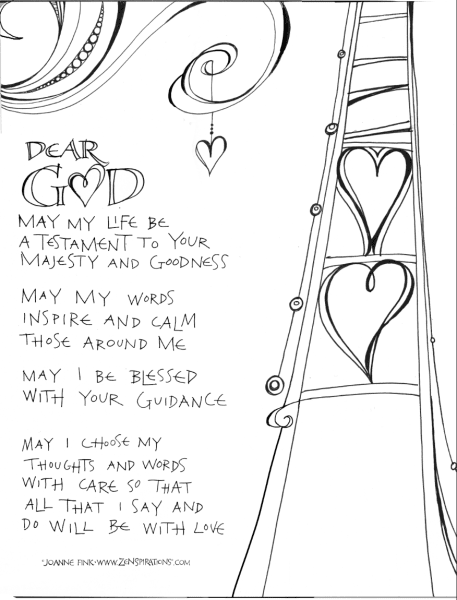 DEAR
GOD
MAY MY LIFE BE
A TESTAMENT TO YOUR
MAJESTY AND GOODNESS
MAY MY WORDS
INSPIRE AND CALM
THOSE AROUND ME
MAY I BE BLESSED
WITH YOUR GUIDANCE
MAY I CHOOSE MY
THOUGHTS AND WORDS
WITH CARE SO THAT
ALL THAT I SAY AND
DO WILL BE WITH LOVE
©JOANNE FINK·WWW.ZENSPIRATIONS®.COM